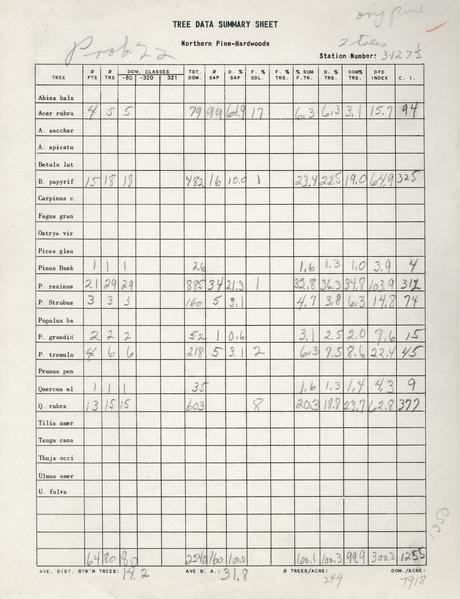 orig pine
TREE DATA SUMMARY SHEET
Northern Pine-Hardwoods
Prob. 22
2 trees
Station Number: 3-127½
TREE # PTS # TRS DOM. CLASSES -80 -320 321 TOT. DOM. # SAP D. % SAP F. % SDL. F. % TRS. % SUM F.TR. D. % TRS. DOM% TRS. DFD INDEX C. I.
Abies bals
Acer rubru 4 5 5 79 99 61.9 17 6.3 6.3 3.1 15.7 94
A. sacchar
A. spicatu
Betula lut
B. papyrif 15 18 18 482 16 10.0 1 23.4 22.5 19.0 64.9 325
Carpinus c
Fagus gran
Ostrya vir
Picea glau
Pinus Bank 1 1 1 26 1.6 1.3 1.0 3.9 4
P. resinos 21 29 29 885 34 21.3 1 32.8 36.3 34.8 103.9 312
P. Strobus 3 3 3 160 5 3.1 4.7 3.8 6.3 14.8 74
Populus ba
P. grandid 2 2 2 52 1 0.6 3.1 2.5 2.0 7.6 15
P. tremulo 4 6 6 218 5 3.1 2 6.3 7.5 8.6 22.4 45
Prunus pen
Quercus el 1 1 1 35 1.6 1.3 1.4 4.3 9
Q. rubra 13 15 15 603 8 20.3 18.8 23.7 62.8 377
Tilia amer
Tsuga cana
Thuja occi
Ulmus amer
U. fulva
64 80 80 2540 160 100.0 100.1 100.3 99.9 300.3 1255
AVE. DIST. BTW'N TREES: 14.2 AVE B. A.: 31.8 # TREES/ACRE: 249 DOM./ACRE: 7918